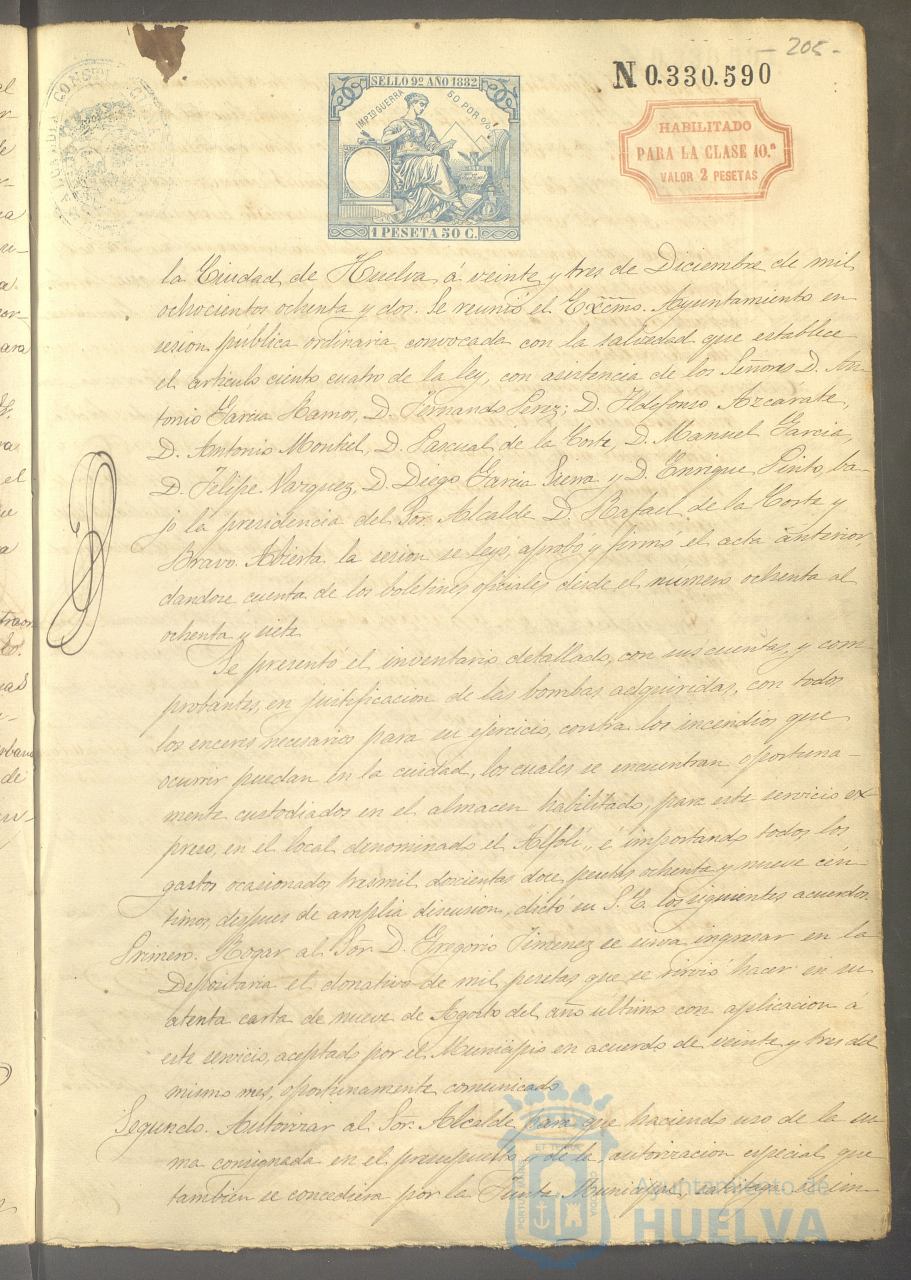 - 205 -
N 0.330.590
SELLO 9º AÑO 1882
IMPTO GUERRA 50 POR %
1 PESETA 50 C.
HABILITADO
PARA LA CLASE 10.ª
VALOR 2 PESETAS
la Ciudad de Huelva á veinte y tres de Diciembre de mil
ochocientos ochenta y dos. Se reunió el Excmo. Ayuntamiento en
sesion pública ordinaria convocada con la salvedad que establece
el articulo ciento cuatro de la ley, con asistencia de los Señores D. An-
tonio Garcia Ramos, D. Fernando Perez; D. Ildefonso Azcárate,
D. Antonio Montiel, D. Pascual de la Corte, D. Manuel Garcia,
D. Felipe Vazquez, D. Diego Garcia Sierra y D. Enrique Pinto, ba-
jo la presidencia del Sor. Alcalde D. Rafael de la Corte y
Bravo. Abierta la sesion se leyó, aprobó y firmó el acta anterior,
dandose cuenta de los boletines oficiales desde el numero ochenta al
ochenta y siete.
Se presentó el inventario detallado, con sus cuentas, y com-
probantes, en justificacion de las bombas adquiridas, con todos
los enceres necesarios para su ejercicio, contra los incendios que
ocurrir puedan en la cuidad, los cuales se encuentran oportuna-
mente custodiados en el almacen habilitado, para este servicio ex-
preso, en el local denominado el Alfolí, é importando todos los
gastos ocasionados tres mil doscientas doce pesetas ochenta y nueve cén-
timos, despues de amplia discusion, dictó su S. E. los siguientes acuerdos.
Primero. Rogar al Sor. D. Gregorio Jimenez se sirva ingresar en la
Depositaria el donativo de mil pesetas que se sirvió hacer en su
atenta carta de nueve de Agosto del año ultimo con aplicacion a
este servicio, aceptado por el Municipio en acuerdo de veinte y tres del
mismo mes, oportunamente comunicado.
Segundo. Autorizar al Sor. Alcalde para que haciendo uso de la su-
ma consignada en el presupuesto y de la autorizacion especial que
tambien se concediera por la Junta Municipal,
Ayuntamiento de
HUELVA